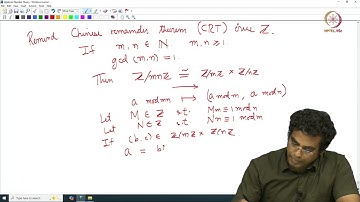 Remind Chinese remainder theorem (CRT) over Z.
If m, n ∈ N m, n ≥ 1
gcd (m, n) = 1.
Then Z/mnZ ≅ Z/mZ × Z/nZ
a mod mn → (a mod m, a mod n)
Let M ∈ Z s.t. Mm ≡ 1 mod n
Let N ∈ Z s.t. Nn ≡ 1 mod m
If (b, c) ∈ Z/mZ × Z/nZ
a = b